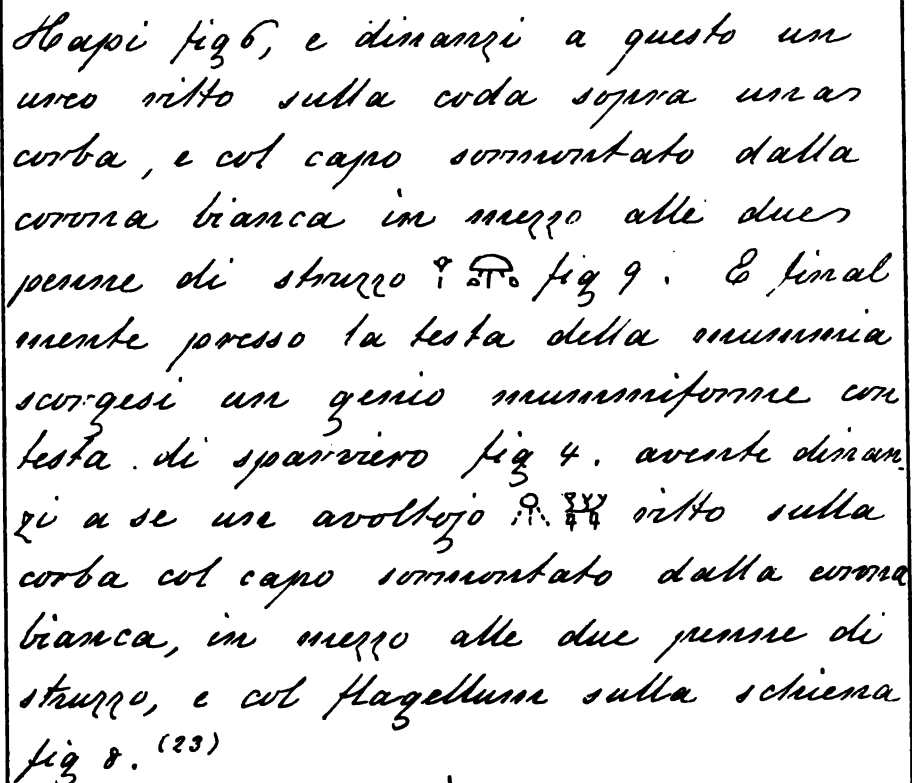 Hapi fig 6, e dinanzi a questo un
ureo ritto sulla coda sopra una
corba, e col capo sormontato dalla
corona bianca in mezzo alle due
penne di struzzo fig 9. E final
mente presso la testa della mummia
scorgesi un genio mummiforme con
testa di sparviero fig 4. avente dinan-
zi a se un avoltojo ritto sulla
corba col capo sormontato dalla corona
bianca, in mezzo alle due penne di
struzzo, e col flagellum sulla schiena
fig 8. (23)